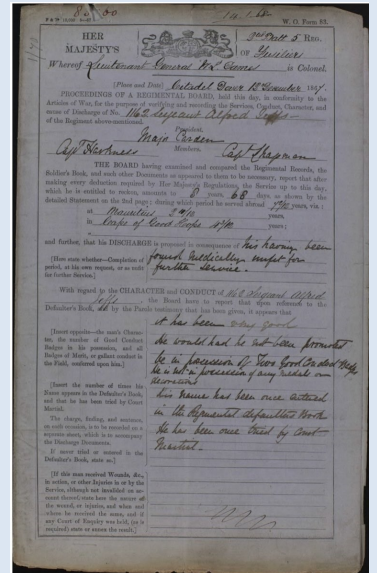 W. O. Form 83.
HER
MAJESTY'S
2nd Batt 5 REG.
OF Fusiliers
Whereof Lieutenant General is Colonel.
(Place and Date) Citadel December 1867
PROCEEDINGS OF A REGIMENTAL BOARD, held this day, in conformity to the
Articles of War, for the purpose of verifying and recording the Services, Conduct, Character, and
cause of Discharge of No. 1162 Sergeant Alfred
of the Regiment above-mentioned.
President.
Major
Members.
Capt Harkness Capt Chapman
THE BOARD having examined and compared the Regimental Records, the
Soldier's Book, and such other Documents as appeared to them to be necessary, report that after
making every deduction required by Her Majesty's Regulations, the Service up to this day,
which he is entitled to reckon, amounts to years, 68 days, as shown by the
detailed Statement on the 2nd page; during which period he served abroad years, viz.:
at Mauritius years;
in Cape of Good Hope years;
and further, that his DISCHARGE is proposed in consequence of his having been
found medically unfit for
further service.
[Here state whether—Completion of
period, at his own request, or as unfit
for further Service.]
With regard to the CHARACTER and CONDUCT of 1162 Sergeant Alfred
, the Board have to report that upon reference to the
Defaulter's Book, by the Parole testimony that has been given, it appears that
it has been very good
He would had he not been promoted
be in possession of Two Good Conduct Badges
he is not in possession of any medals or
decorations
[Insert opposite—the man's Character,
the number of Good Conduct
Badges in his possession, and all
Badges of Merit, or gallant conduct in
the Field, conferred upon him.]
His name has been once entered
in the Regimental defaulters Book
He has been once tried by Court
Martial.
[Insert the number of times his
Name appears in the Defaulter's Book,
and that he has been tried by Court
Martial.
The charge, finding, and sentence,
on each occasion, is to be recorded on a
separate sheet, which is to accompany
the Discharge Documents.
If never tried or named in the
Defaulter's Book, state so.]
[If this man received Wounds, &c.,
in action, or other Injuries in or by the
Service, although not invalided on account
thereof, state here the nature of
the wound, or injuries, and when and
where he received the same, and if
any Court of Enquiry was held, (as is
required) state or annex the result.]